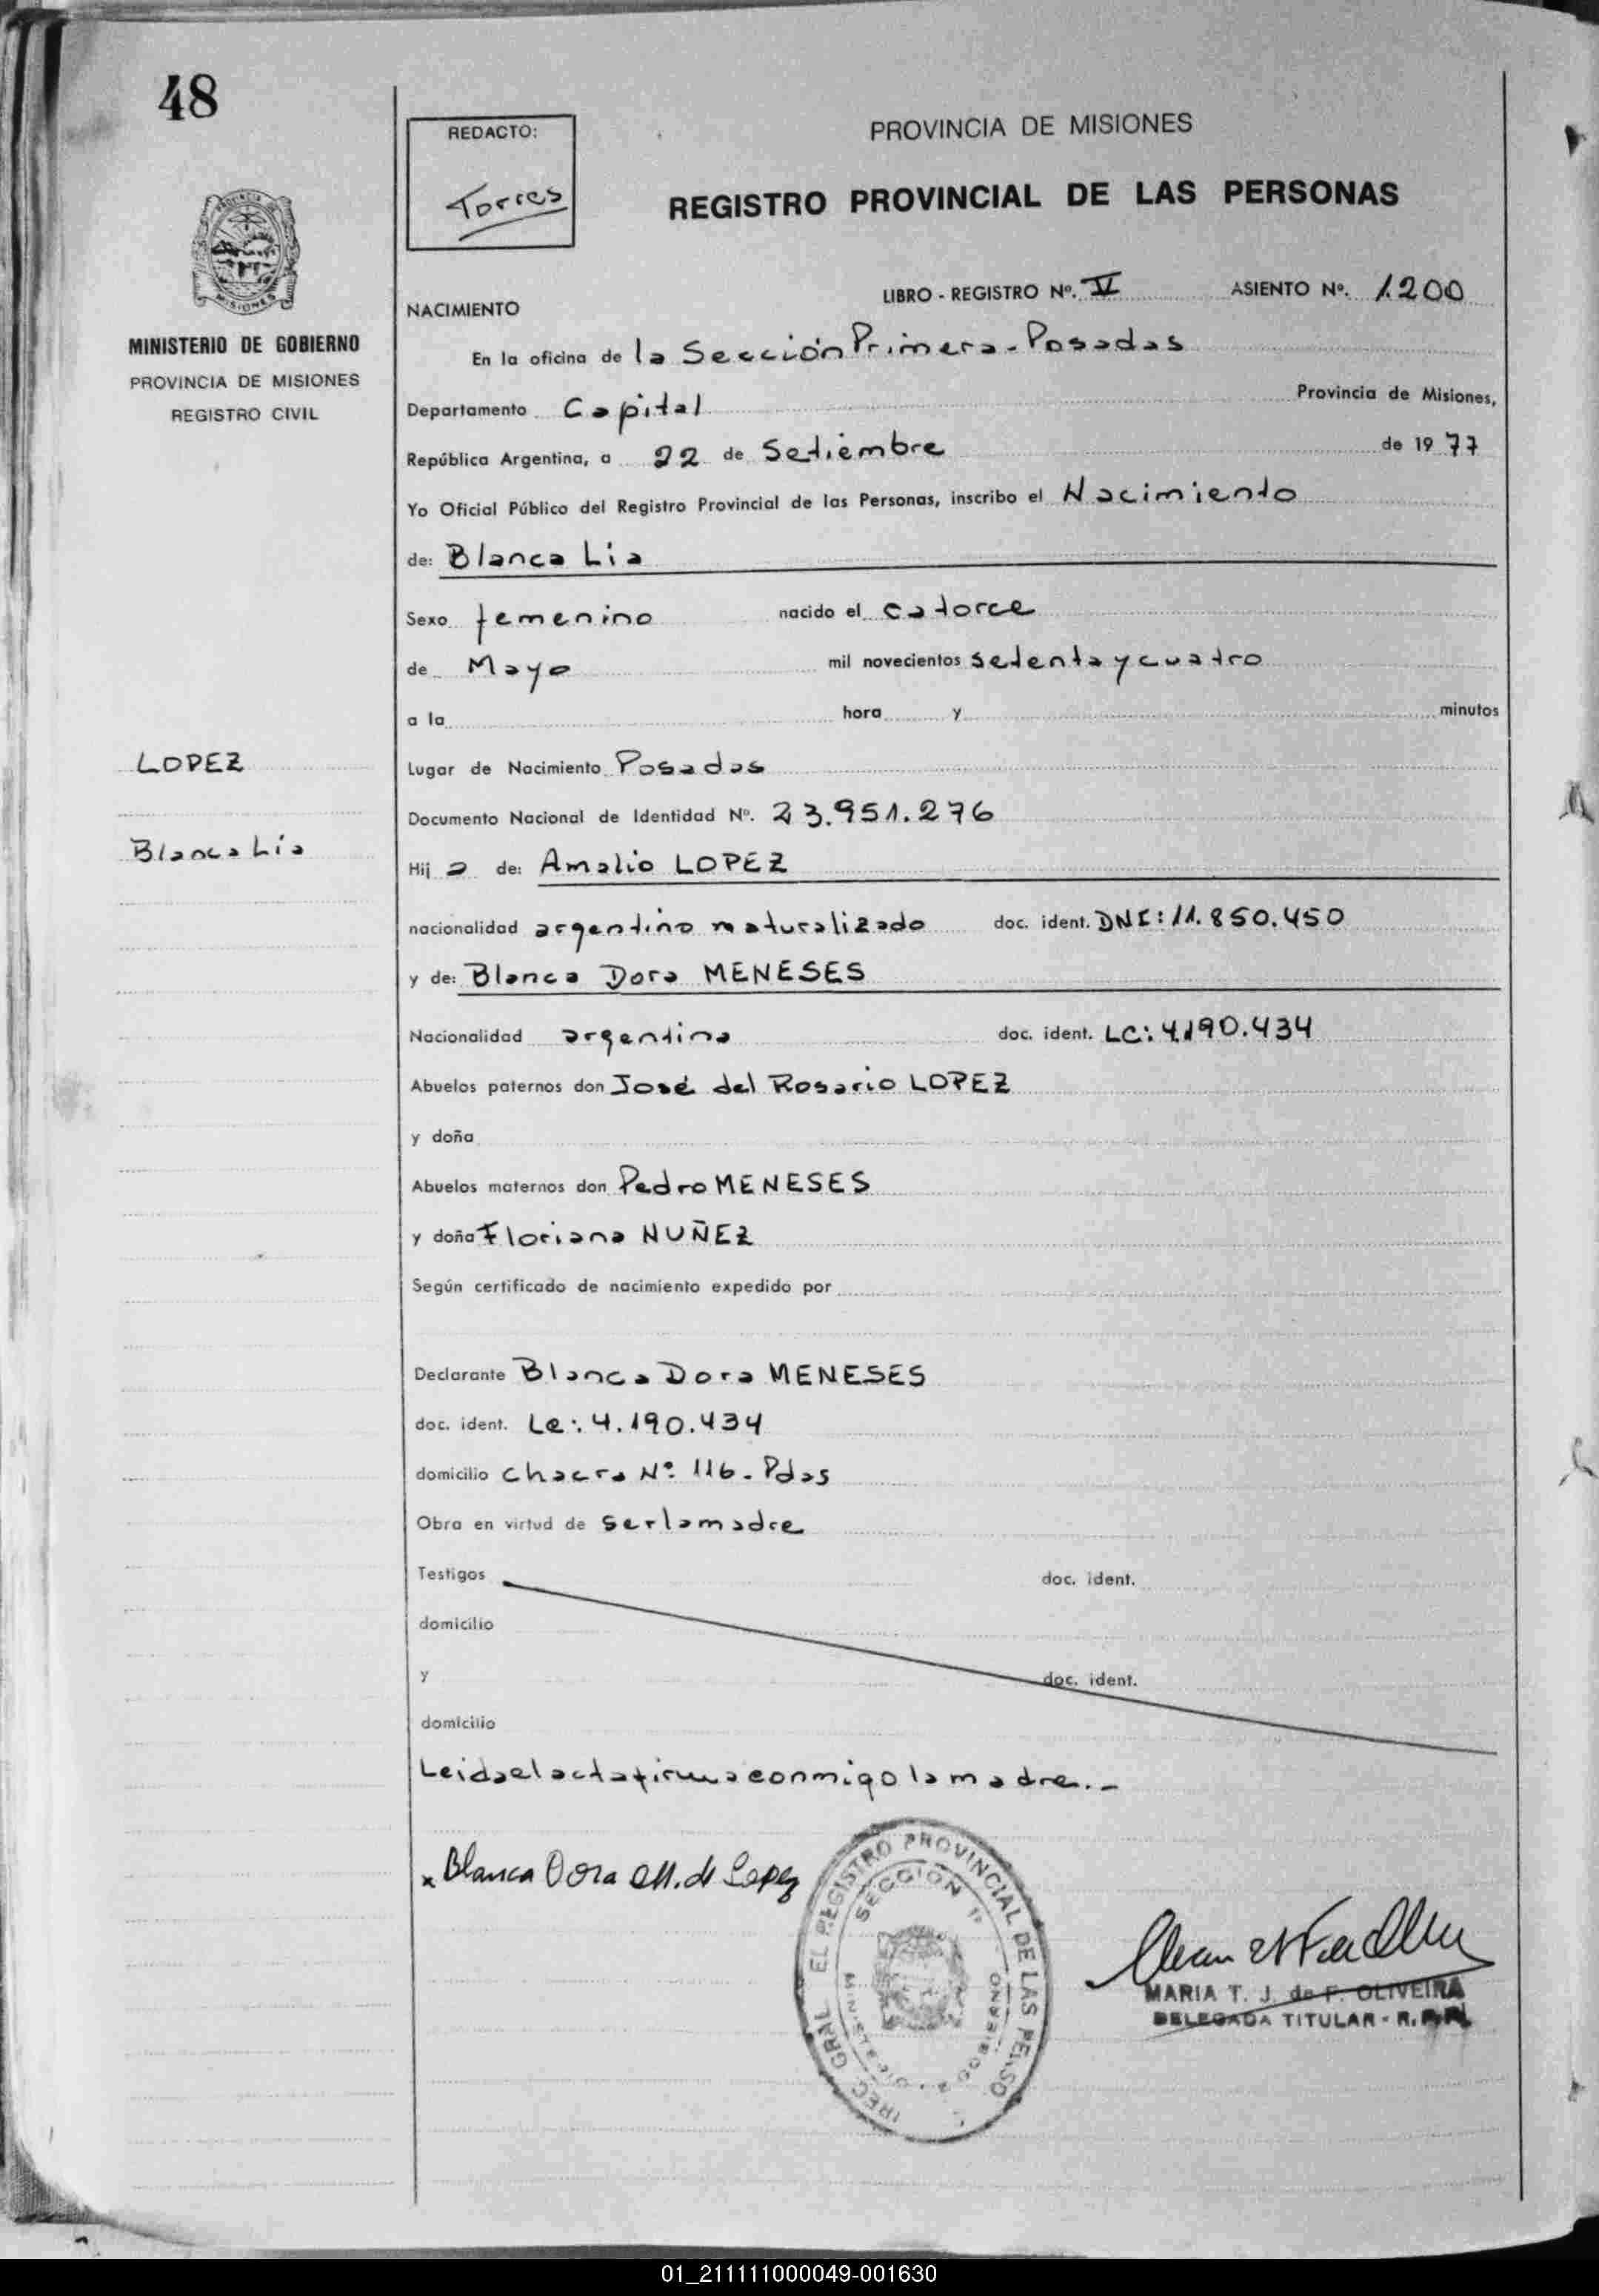 48
REDACTO:
Torres
PROVINCIA DE MISIONES
REGISTRO PROVINCIAL DE LAS PERSONAS
PROVINCIA
MISIONES
MINISTERIO DE GOBIERNO
PROVINCIA DE MISIONES
REGISTRO CIVIL
LIBRO - REGISTRO Nº. V ASIENTO Nº. 1.200
NACIMIENTO
En la oficina de la Sección Primera - Posadas
Departamento Capital Provincia de Misiones,
República Argentina, a 22 de Setiembre de 1977
Yo Oficial Público del Registro Provincial de las Personas, inscribo el Nacimiento
de: Blanca Lia
Sexo femenino nacido el catorce
de Mayo mil novecientos setenta y cuatro
a la hora y minutos
LOPEZ
Lugar de Nacimiento Posadas
Documento Nacional de Identidad Nº. 23.951.276
Blanca Lia
Hij a de: Amalio LOPEZ
nacionalidad argentino naturalizado doc. ident. DNI: 11.850.450
y de: Blanca Dora MENESES
Nacionalidad argentina doc. ident. LC: 4.190.434
Abuelos paternos don José del Rosario LOPEZ
y doña
Abuelos maternos don Pedro MENESES
y doña Floriana NUÑEZ
Según certificado de nacimiento expedido por
Declarante Blanca Dora MENESES
doc. ident. Lc: 4.190.434
domicilio chacra Nº 116 - Pdas
Obra en virtud de ser la madre
Testigos doc. ident.
domicilio
y doc. ident.
domicilio
Leida el acta firma conmigo la madre.-
x Blanca Dora M. de Lopez
REC. GRAL EL REGISTRO PROVINCIAL DE LAS PERSO
SECCION 1ª
MARIA T. J. de F. OLIVEIRA
DELEGADA TITULAR - R.P.P.
01_211111000049-001630